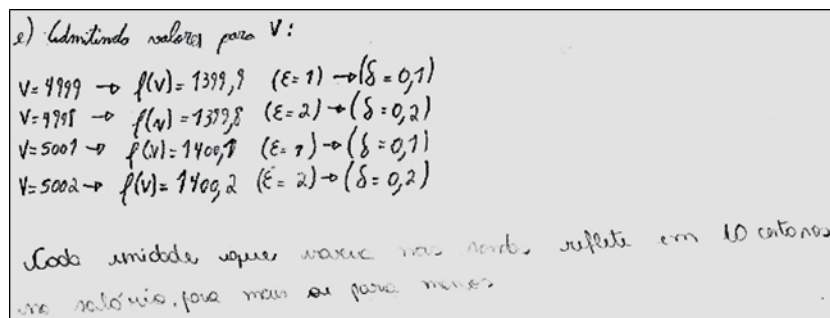 e) Admitindo valores para V:
V=4999 → f(v)=1399,9 (ε=1) →(δ=0,1)
V=4998 → f(v)=1399,8 (ε=2)→(δ=0,2)
V=5001→ f(v)=1400,1 (ε=1)→(δ=0,1)
V=5002→ f(v)=1400,2 (ε=2)→(δ=0,2)
Cada unidade que varia nas vendas reflete em 10 centavos
no salário, para mais ou para menos